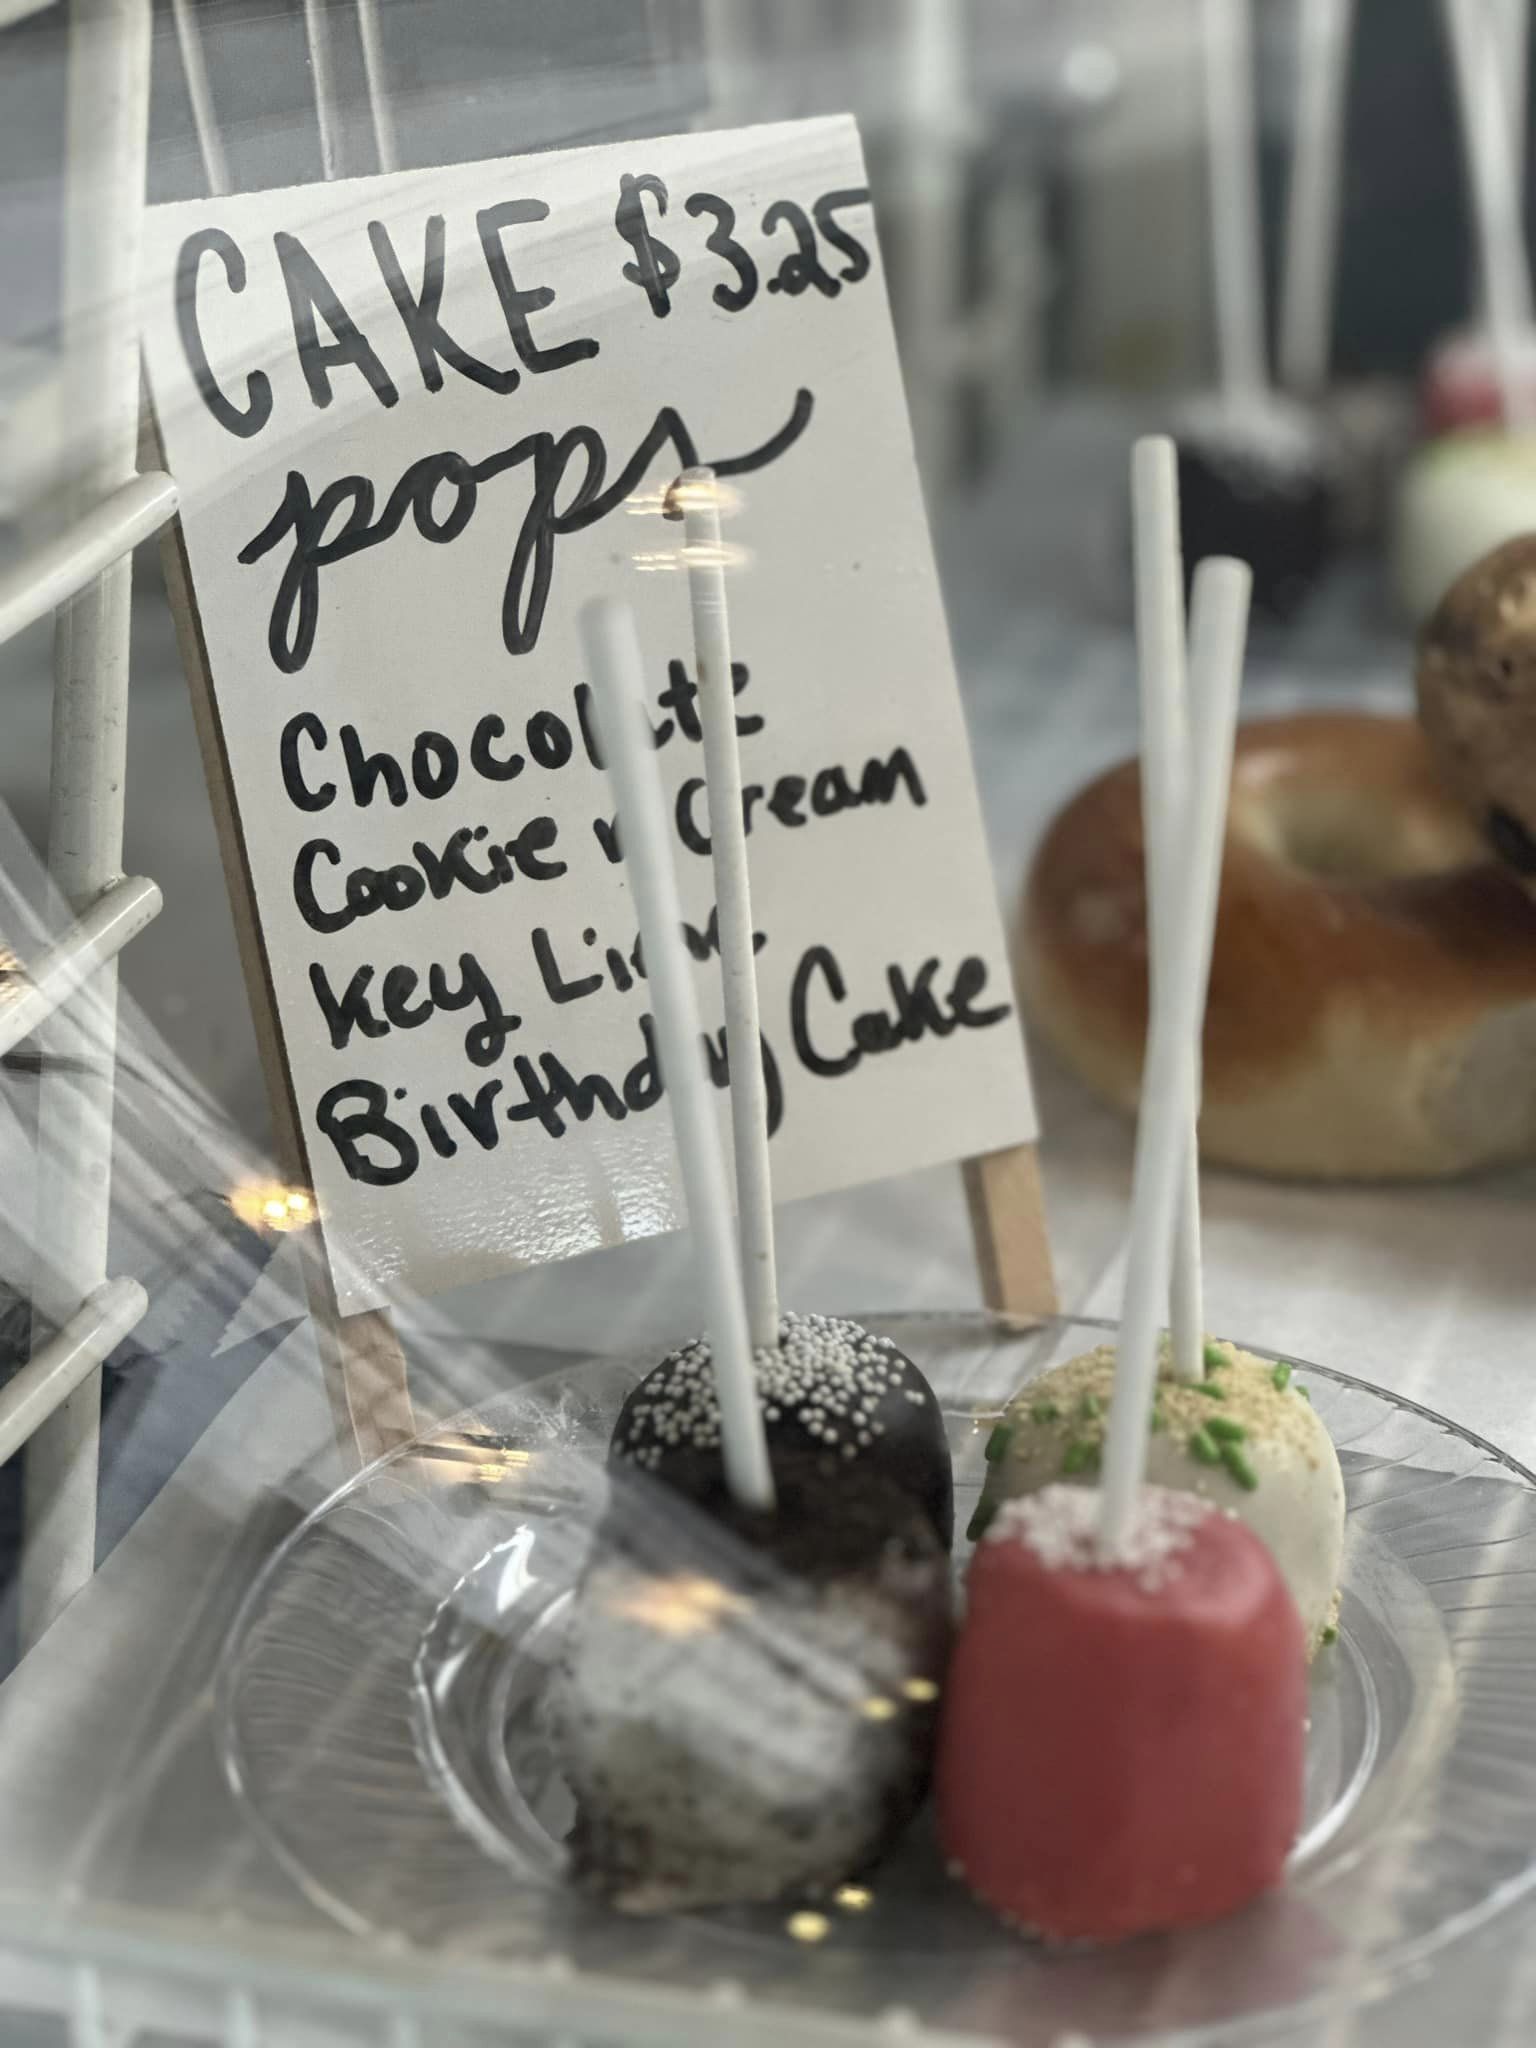 CAKE $3.25
pops
Chocolate
Cookie n Cream
Key Lime
Birthday Cake